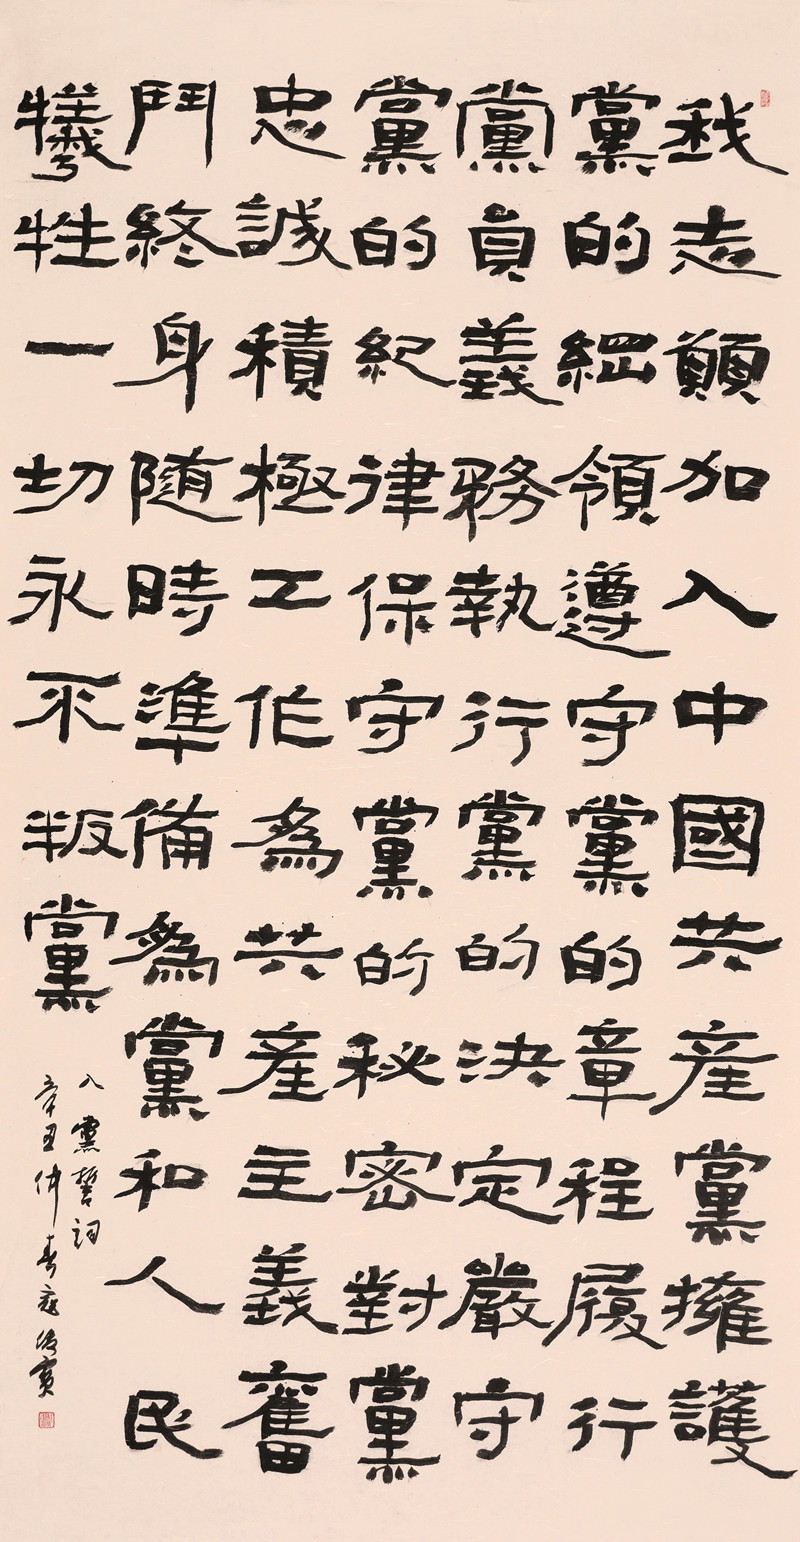 我志願加入中國共産黨擁護
黨的綱領遵守黨的章程履行
黨員義務執行黨的決定嚴守
黨的紀律保守黨的秘密對黨
忠誠積極工作為共産主義奮
鬥終身隨時準備為黨和人民
犧牲一切永不叛黨
入黨誓詞
辛丑仲春